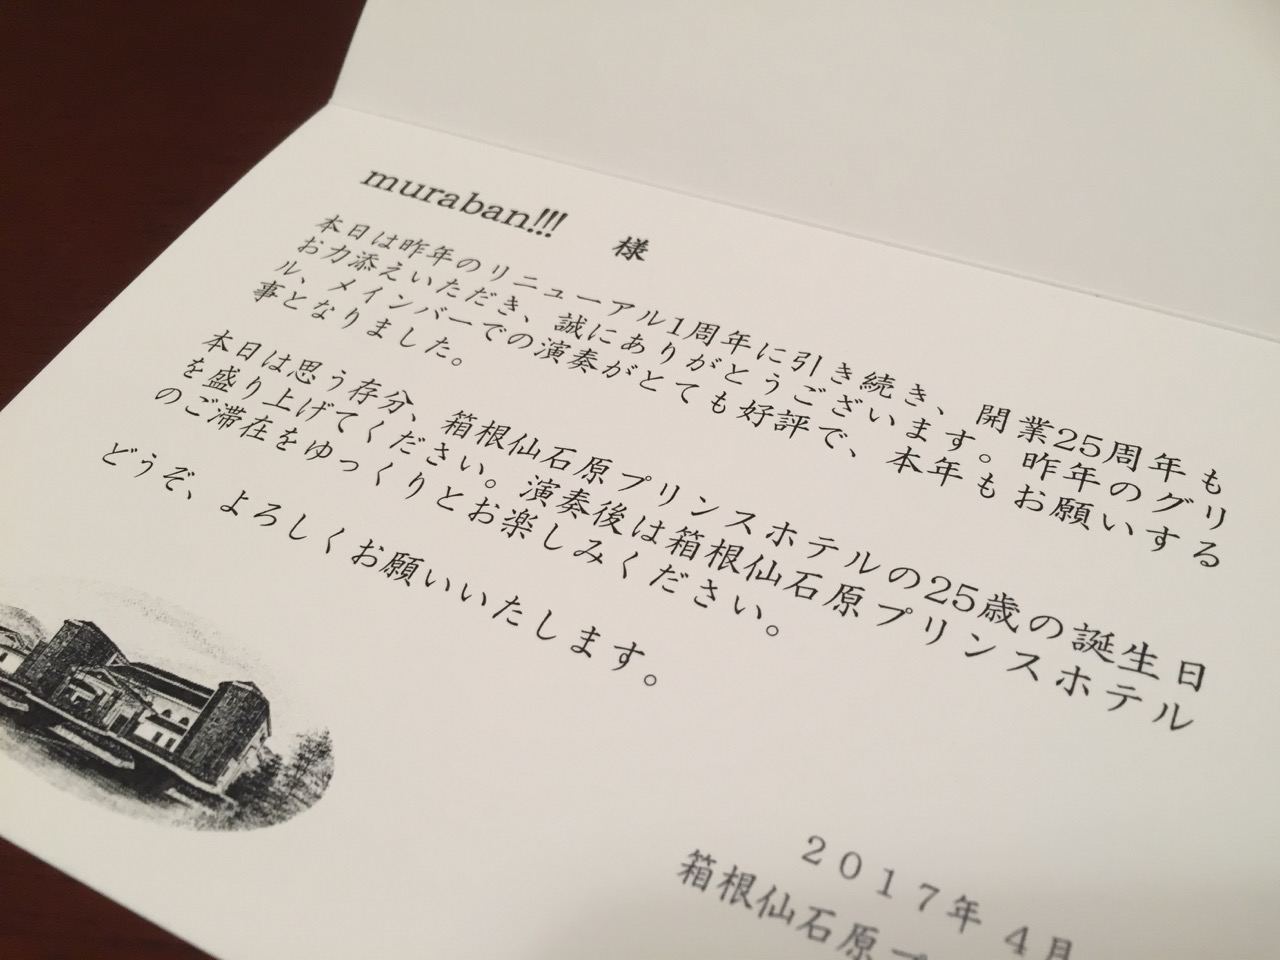 muraban!!! 様
本日は昨年のリニューアル1周年に引き続き、開業25周年も
お力添えいただき、誠にありがとうございます。昨年のグリ
ル、メインバーでの演奏がとても好評で、本年もお願いする
事となりました。
本日は思う存分、箱根仙石原プリンスホテルの25歳の誕生日
を盛り上げてください。演奏後は箱根仙石原プリンスホテル
のご滞在をゆっくりとお楽しみください。
どうぞ、よろしくお願いいたします。
2017年 4月
箱根仙石原プ